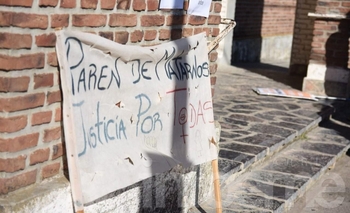 PAREN DE MATARNOS
JUSTICIA POR T@DAS